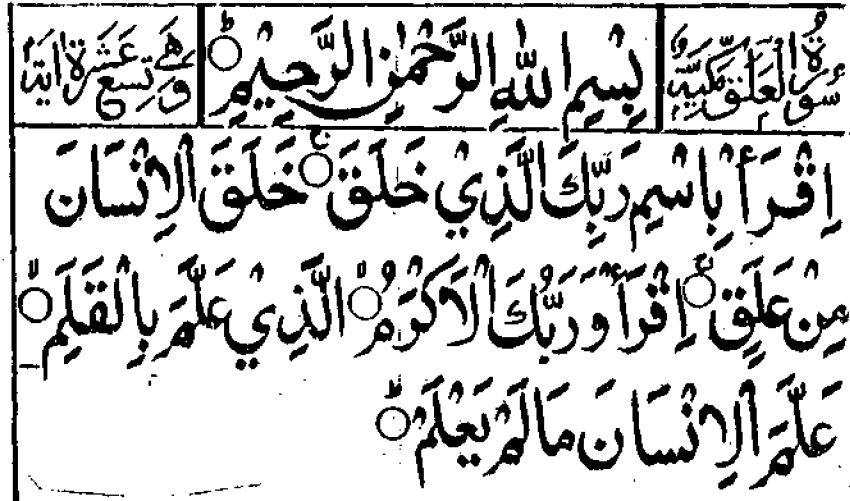 سُوْرَةُ الْعَلَقِ مَكِّيَّةٌ بِسْمِ اللهِ الرَّحْمٰنِ الرَّحِيْمِ ○ط وَهِيَ تِسْعَ عَشَرَةَ اٰيَةً
اِقْرَأْ بِاسْمِ رَبِّكَ الَّذِيْ خَلَقَ ○ج خَلَقَ الْاِنْسَانَ
مِنْ عَلَقٍ ○ج اِقْرَأْ وَرَبُّكَ الْاَكْرَمُ ○لا الَّذِيْ عَلَّمَ بِالْقَلَمِ ○لا
عَلَّمَ الْاِنْسَانَ مَا لَمْ يَعْلَمْ ○ط